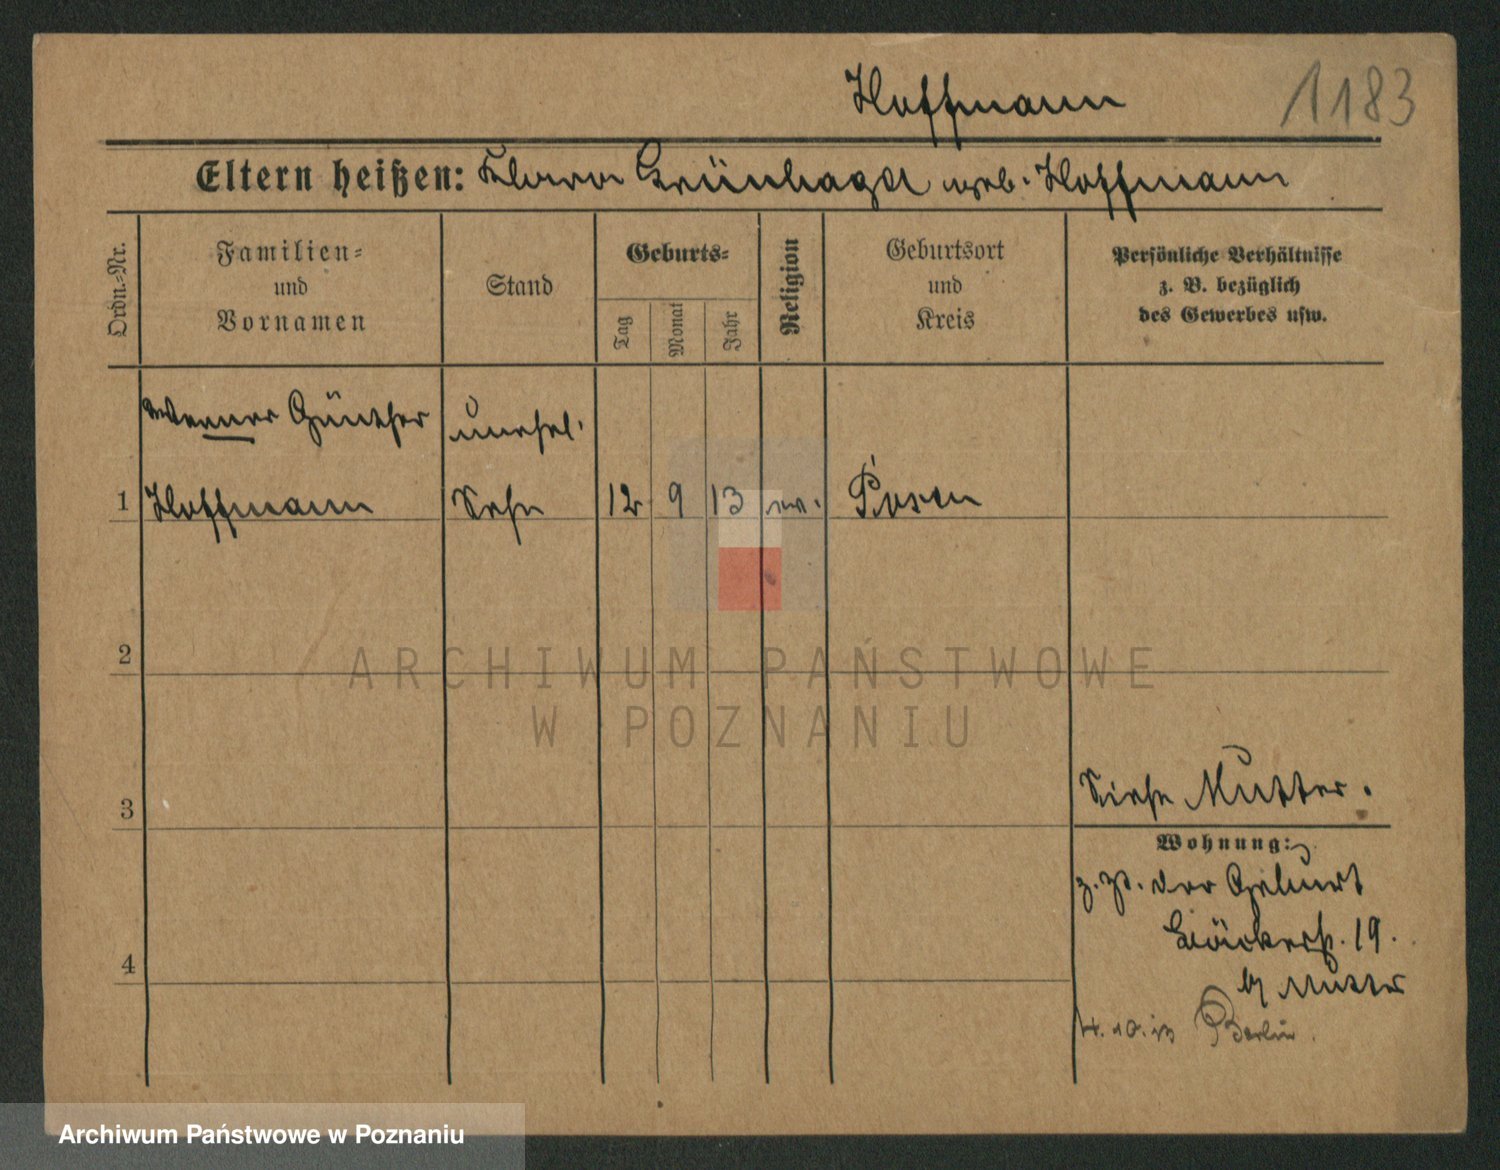 Hoffmann 1183
Eltern heißen: Klara Grünhagel geb. Hoffmann
Ordn.-Nr.
Familien-
und
Vornamen
Stand
Geburts-
Tag
Monat
Jahr
Religion
Geburtsort
und
Kreis
Persönliche Verhältnisse
z. B. bezüglich
des Gewerbes usw.
Werner Günther unehel.
1 Hoffmann Sohn 12 9 13 ev. Posen
2
ARCHIWUM PAŃSTWOWE
W POZNANIU
3
Siehe Mutter.
Wohnung:
z. Zt. der Geburt
Bäckerst. 19.
b/ Mutter
4
4.10.13 Berlin.
Archiwum Państwowe w Poznaniu